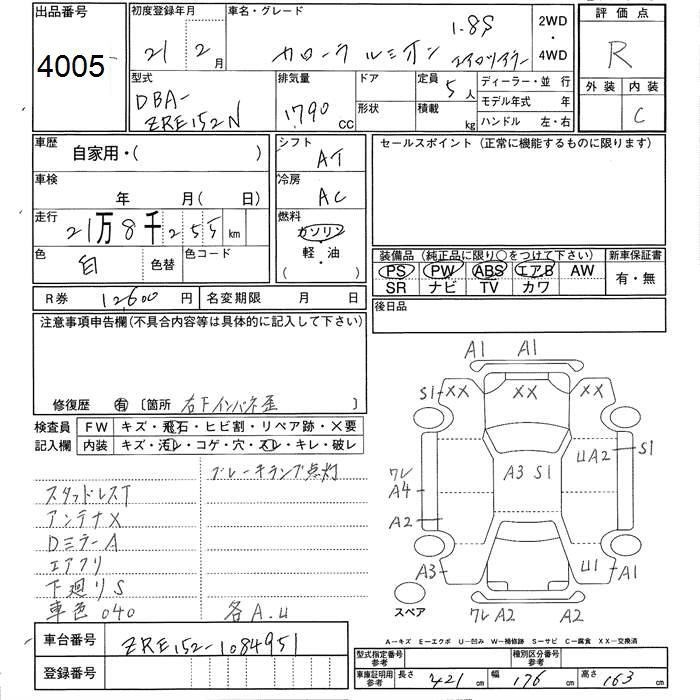 出品番号
4005
初度登録年月
21 2月
車名・グレード
カローラ ルミオン 1.8S
エアロツアラー
2WD
・
4WD
評価点
R
外装 内装
C
型式
DBA-
ZRE152N
排気量
1790 cc
ドア
形状
定員 5人
積載 kg
ディーラー・並 行
モデル年式 年
ハンドル 左・右
車歴
自家用・( )
シフト
AT
セールスポイント (正常に機能するものに限ります)
車検
年 月( 日)
冷房
AC
走行
21万8千255km
燃料
ガソリン
軽・油
( )
色
白
色替
色コード
装備品 (純正品に限り○をつけて下さい)
PS PW ABS エアB AW
SR ナビ TV カワ
新車保証書
有・無
R券 12600円
名変期限 月 日
後日品
注意事項申告欄(不具合内容等は具体的に記入して下さい)
修復歴 有 〔箇所 右下インパネ歪 〕
検査員
記入欄
FW キズ・飛石・ヒビ割・リペア跡・X要
内装 キズ・汚レ・コゲ・穴・スレ・キレ・破レ
ブレーキランプ点灯
スタッドレスT
アンテナX
DミラーA
エアクリ
下廻りS
車色040
各A.U
A1 A1
S1 XX XX XX
ワレ
A4
A2
A3 S1
UA2 S1
A3
U1 A1
スペア
ワレ A2 A2
A－キズ E－エクボ U－凹み W－補修跡 S－サビ C－腐食 XX－交換済
車台番号
ZRE152-1084951
登録番号
型式指定番号
参考
種別区分番号
参考
車庫証明用
参考
長さ 421 cm
幅 176 cm
高さ 163 cm